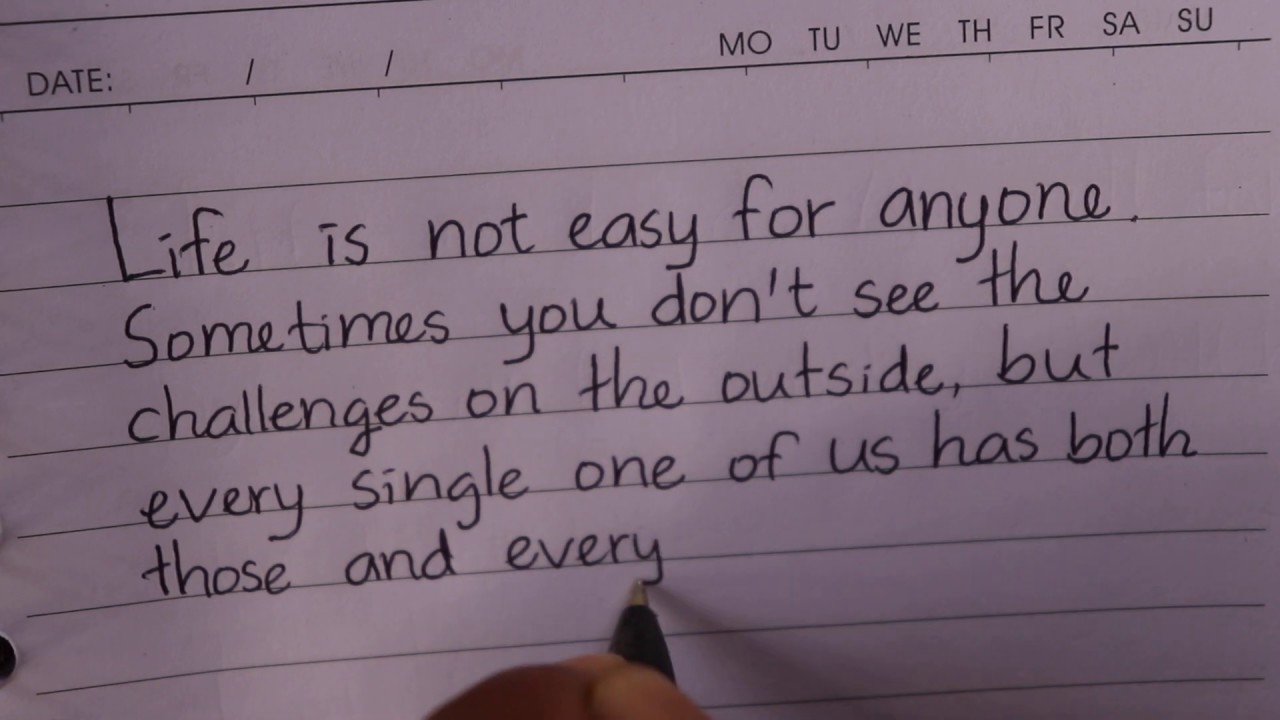 MO TU WE TH FR SA SU
DATE: / /
Life is not easy for anyone.
Sometimes you don't see the
challenges on the outside, but
every single one of us has both
those and every